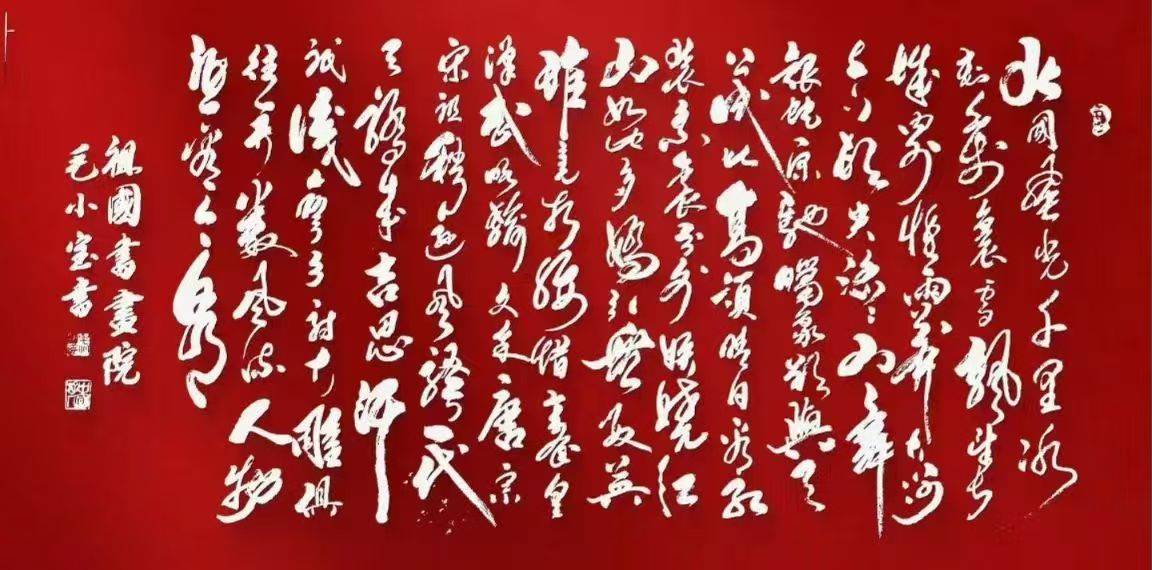 北國風光千里冰
封萬里雪飄望長
城內外惟餘莽莽大河
上下頓失滔滔山舞
銀蛇原馳蠟象欲與天
公試比高須晴日看紅
裝素裹分外妖嬈江
山如此多嬌引無數英
雄競折腰惜秦皇
漢武略輸文采唐宗
宋祖稍遜風騷一代
天驕成吉思汗
祇識彎弓射大雕俱
往矣數風流人物
還看今朝
祖國書畫院
毛小宝書